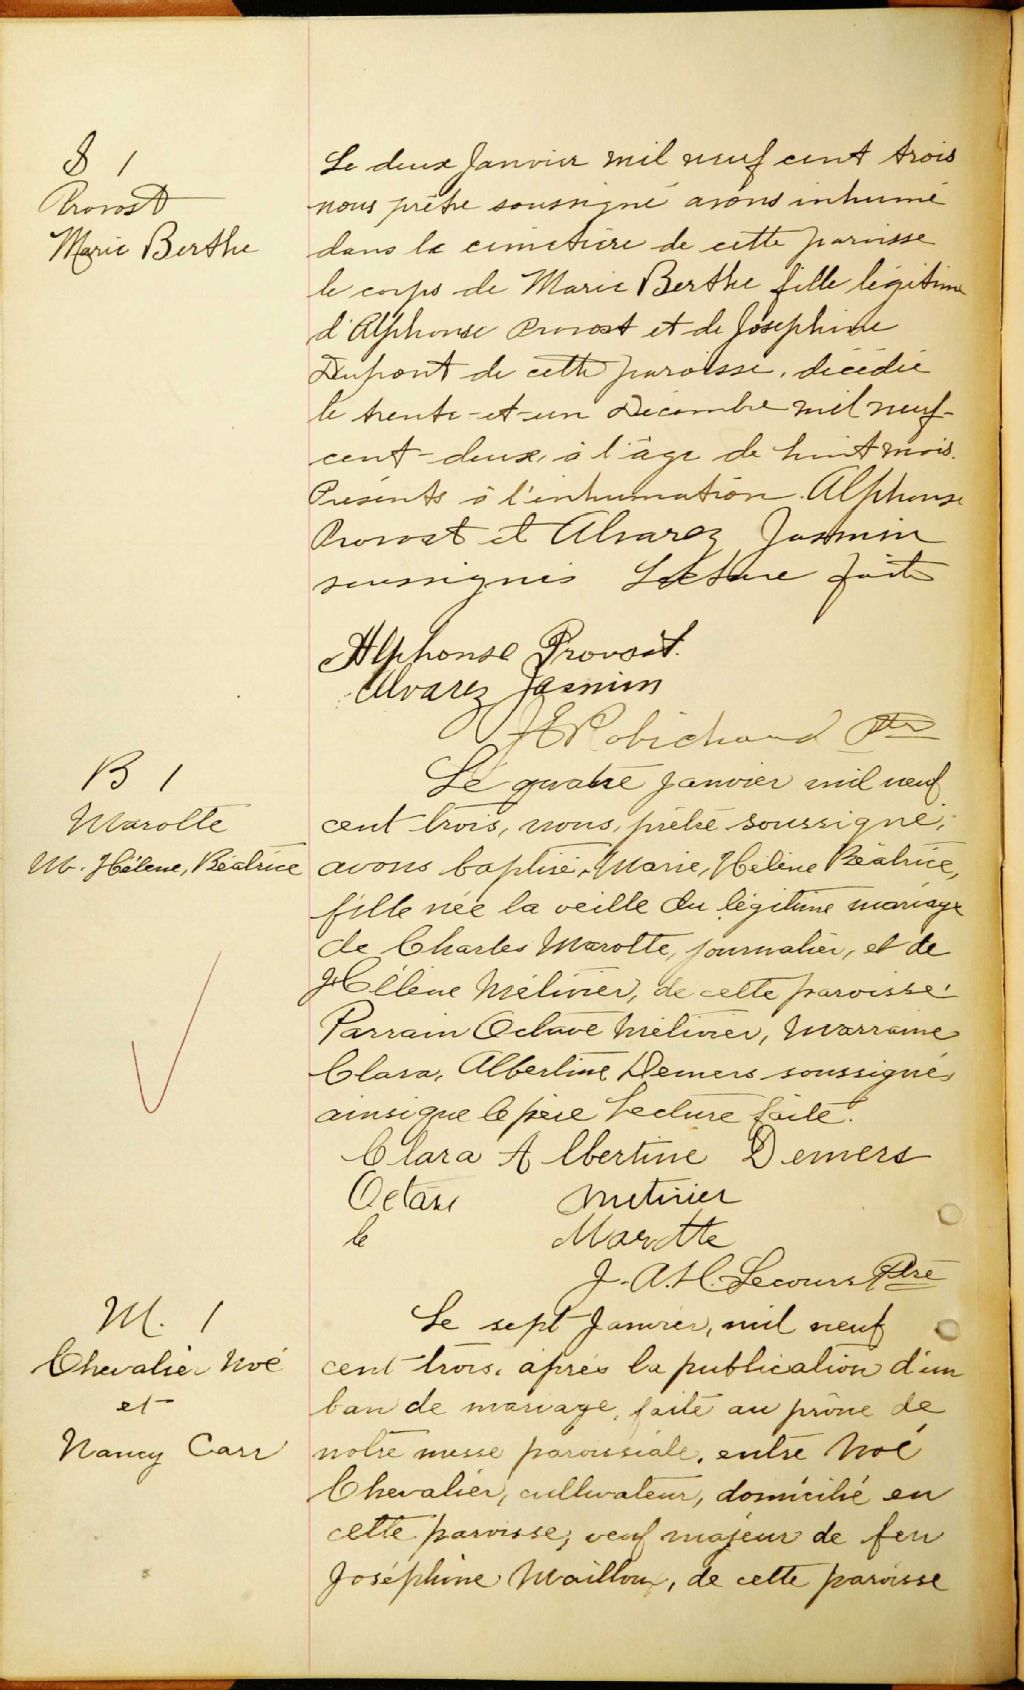 S 1
Provost
Marie Berthe
Le deux Janvier mil neuf cent trois
nous prêtre soussigné avons inhumé
dans le cimetière de cette paroisse
le corps de Marie Berthe fille légitime
d'Alphonse Provost et de Joséphine
Dupont de cette paroisse, décédée
le trente-et-un Décembre mil neuf-
cent-deux, à l'âge de huit mois.
Présents à l'inhumation. Alphonse
Provost et Alvarez Jasmin
soussignés Lecture faite
Alphonse Provost.
Alvarez Jasmin
J E Robichaud Ptre
B 1
Marotte
M. Hélène, Béatrice
Le quatre janvier mil neuf
cent trois, nous, prêtre soussigné,
avons baptisé, Marie, Hélène Béatrice,
fille née la veille du légitime mariage
de Charles Marotte, journalier, et de
Hélène Métivier, de cette paroisse.
Parrain Octave Métivier, Marraine
Clara, Albertine Demers soussignés
ainsi que le père Lecture faite.
Clara Albertine Demers
Octave Metivier
le Marotte
J. A. H. Lecours Ptre
M. 1
Chevalier Noé
et
Nancy Carr
Le sept Janvier, mil neuf
cent trois, après la publication d'un
ban de mariage, faite au prône de
notre messe paroissiale, entre Noé
Chevalier, cultivateur, domicilié en
cette paroisse, veuf majeur de feu
Joséphine Mailloux, de cette paroisse